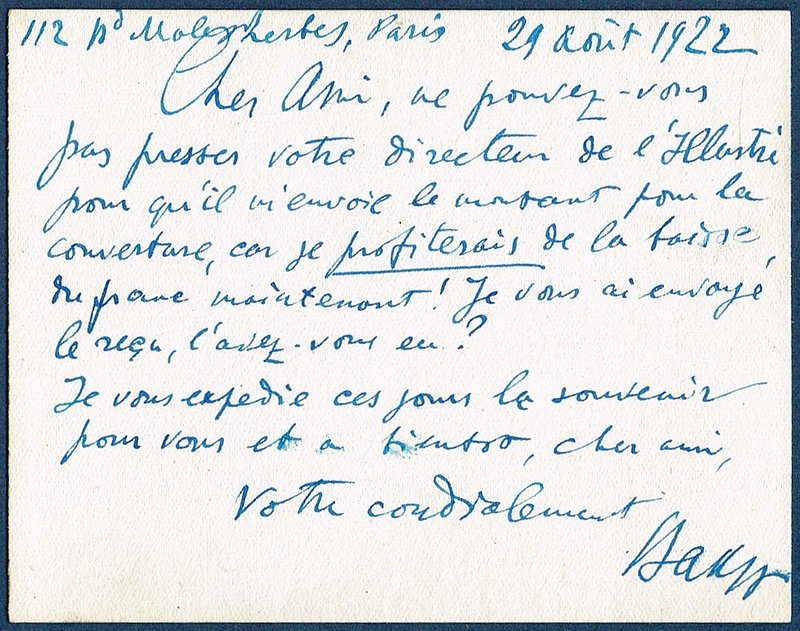 112 Bd Malesherbes, Paris 29 Août 1922
Cher Ami, ne pouvez-vous
pas presser votre directeur de l'Illustré
pour qu'il m'envoie le montant pour la
couverture, car je profiterais de la baisse
du franc maintenant! Je vous ai envoyé
le reçu, l'avez-vous eu?
Je vous expédie ces jours le souvenir
pour vous et a bientot, cher ami,
Votre cordialement